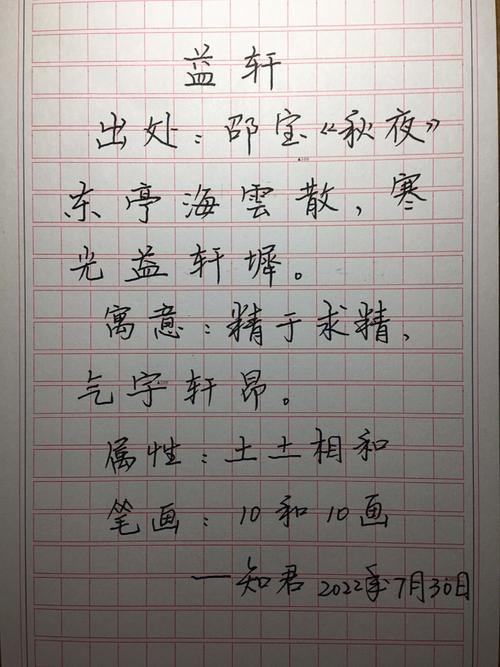 益轩
出处：邵宝《秋夜》
东亭海雲散，寒
光益轩墀。
寓意：精于求精，
气宇轩昂。
属性：土土相和
笔画：10和10画
一知君 2022年7月30日